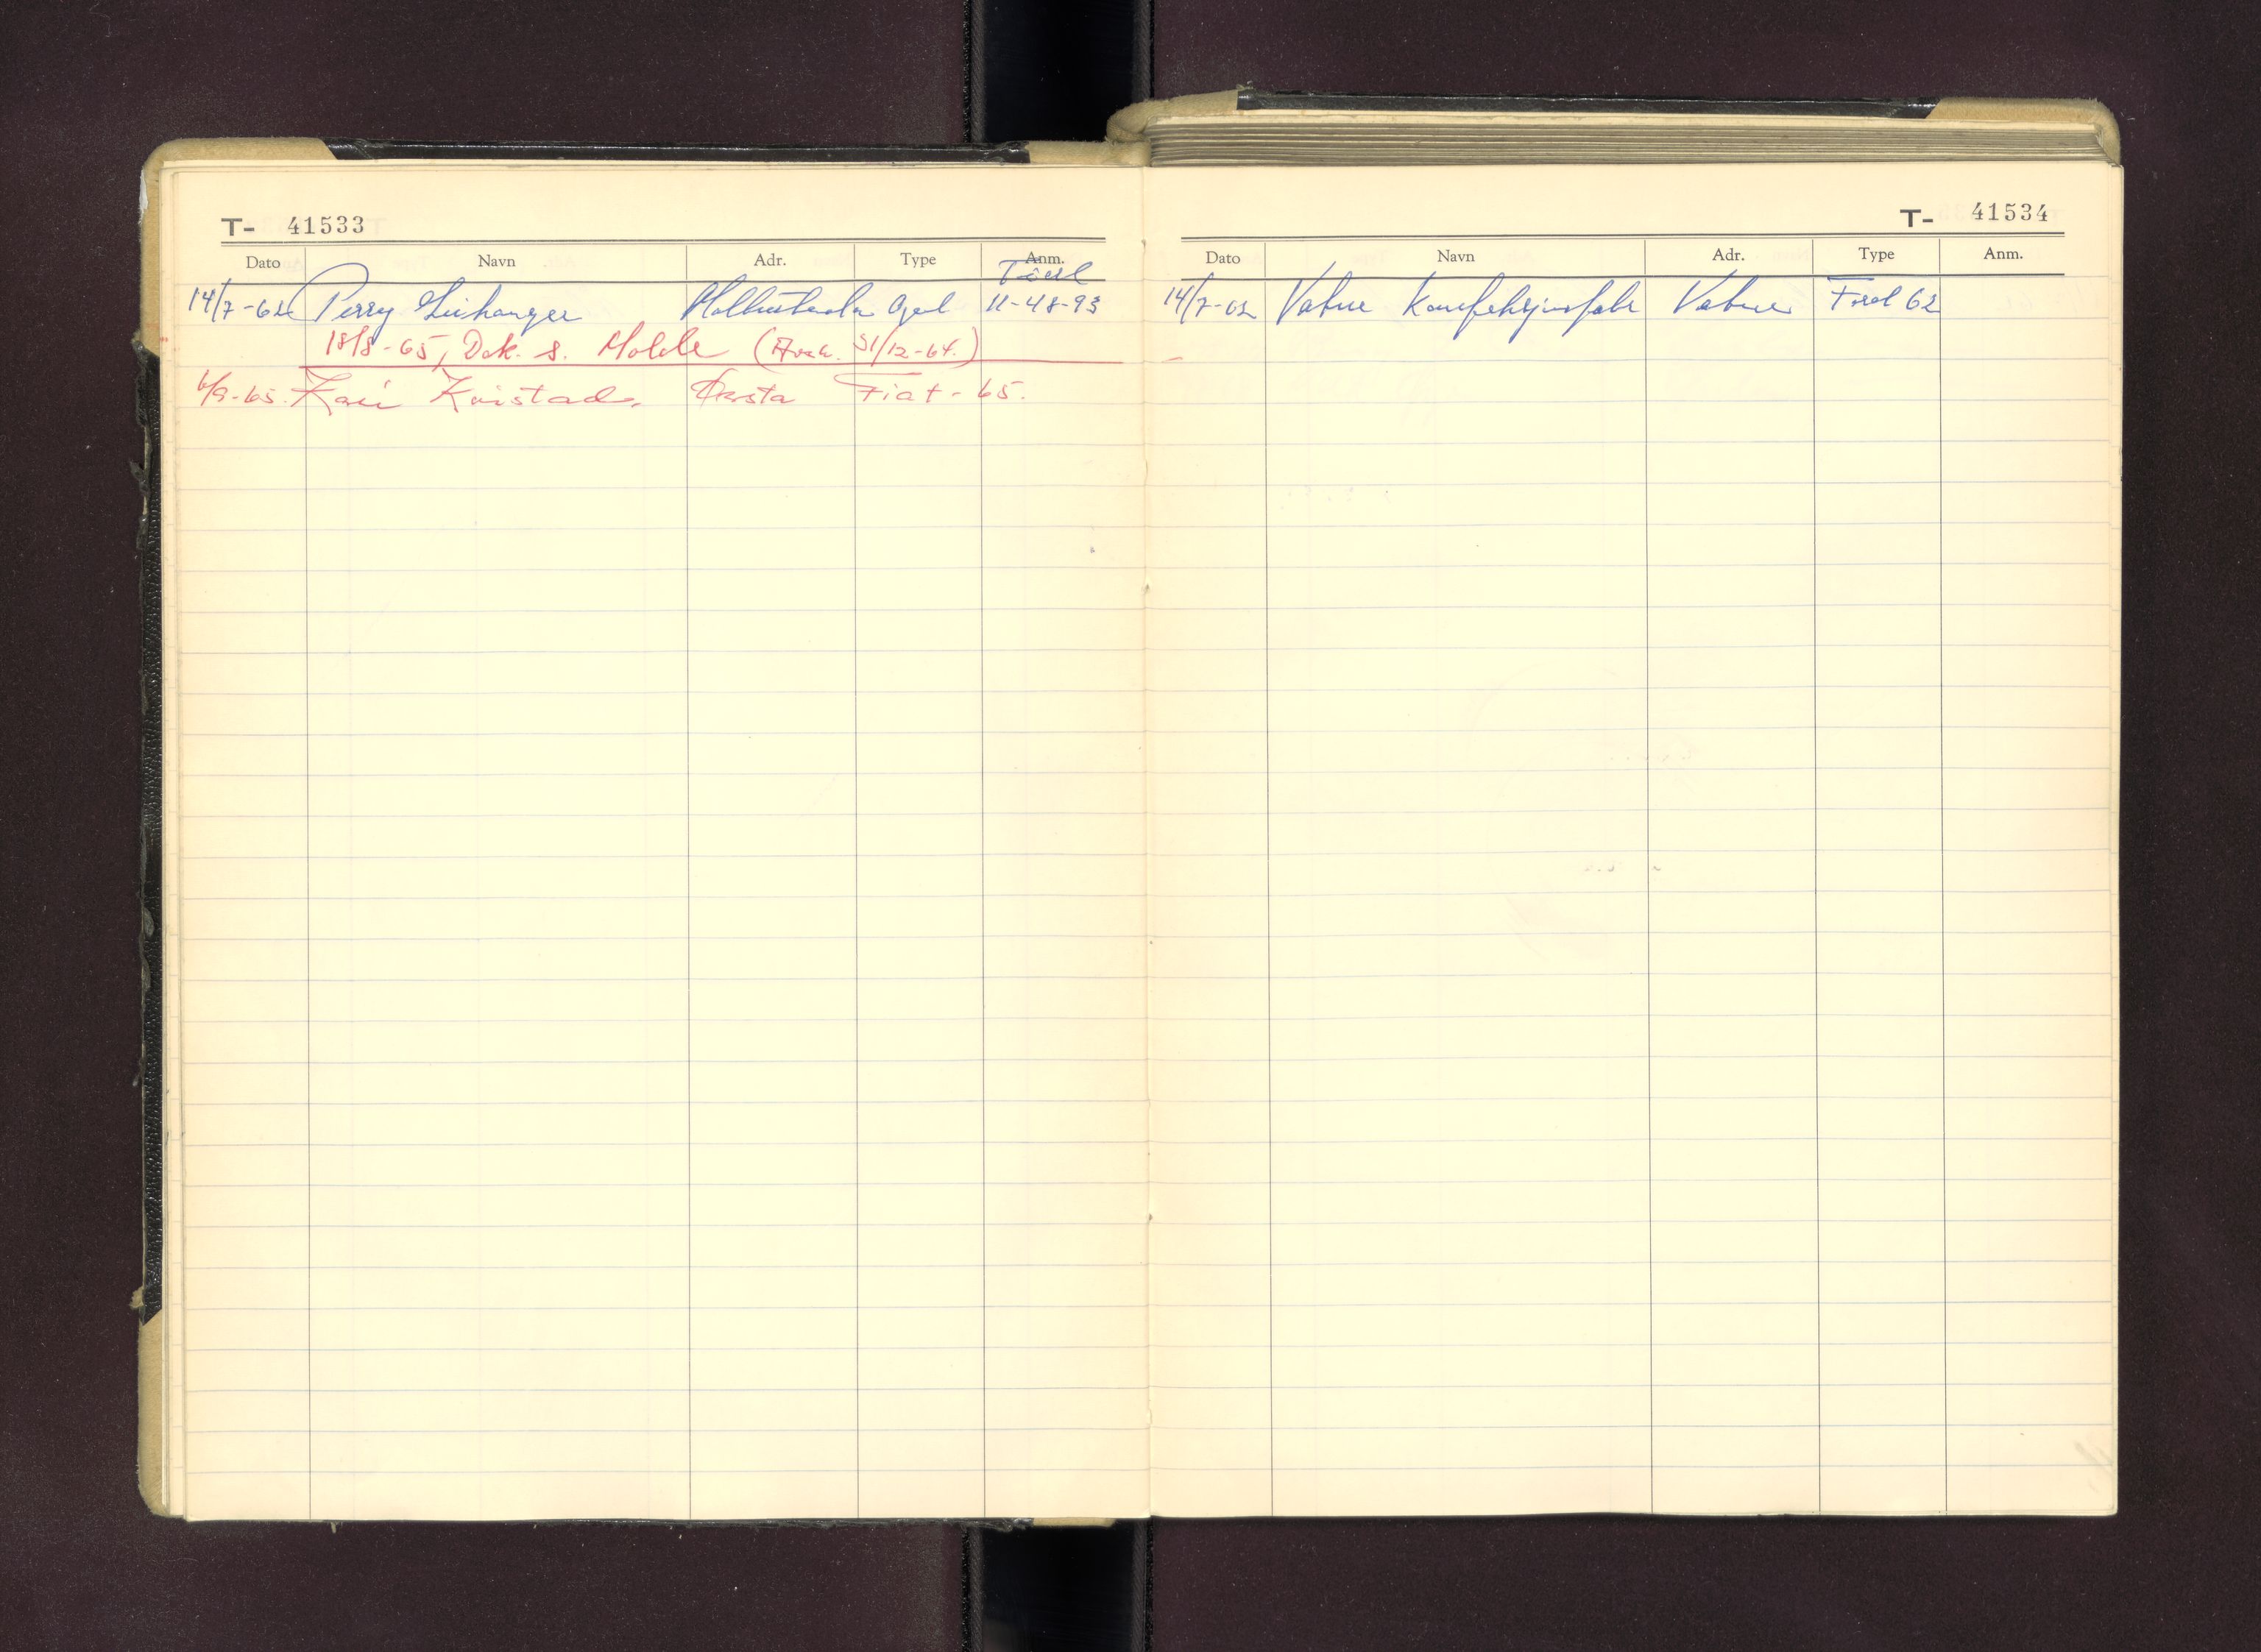 T- 41533
Dato Navn Adr. Type Anm.
14/7-62 Perry Leikanger Opel 11-48-93
18/8-65, Dok. s. Molde (Avsk. 31/12-64.)
6/9-65. Kari Kvistad, Ørsta Fiat-65.
T- 41534
Dato Navn Adr. Type Anm.
14/7-62 Vatne Konfeksjonsfabr Vatne Ford 62